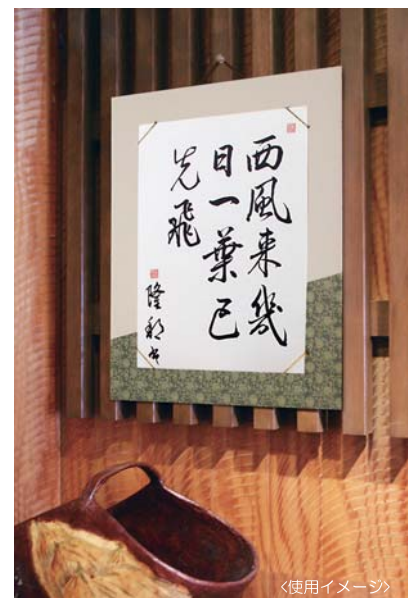 西風来幾
日一葉已
先飛
隆邦書
〈使用イメージ〉